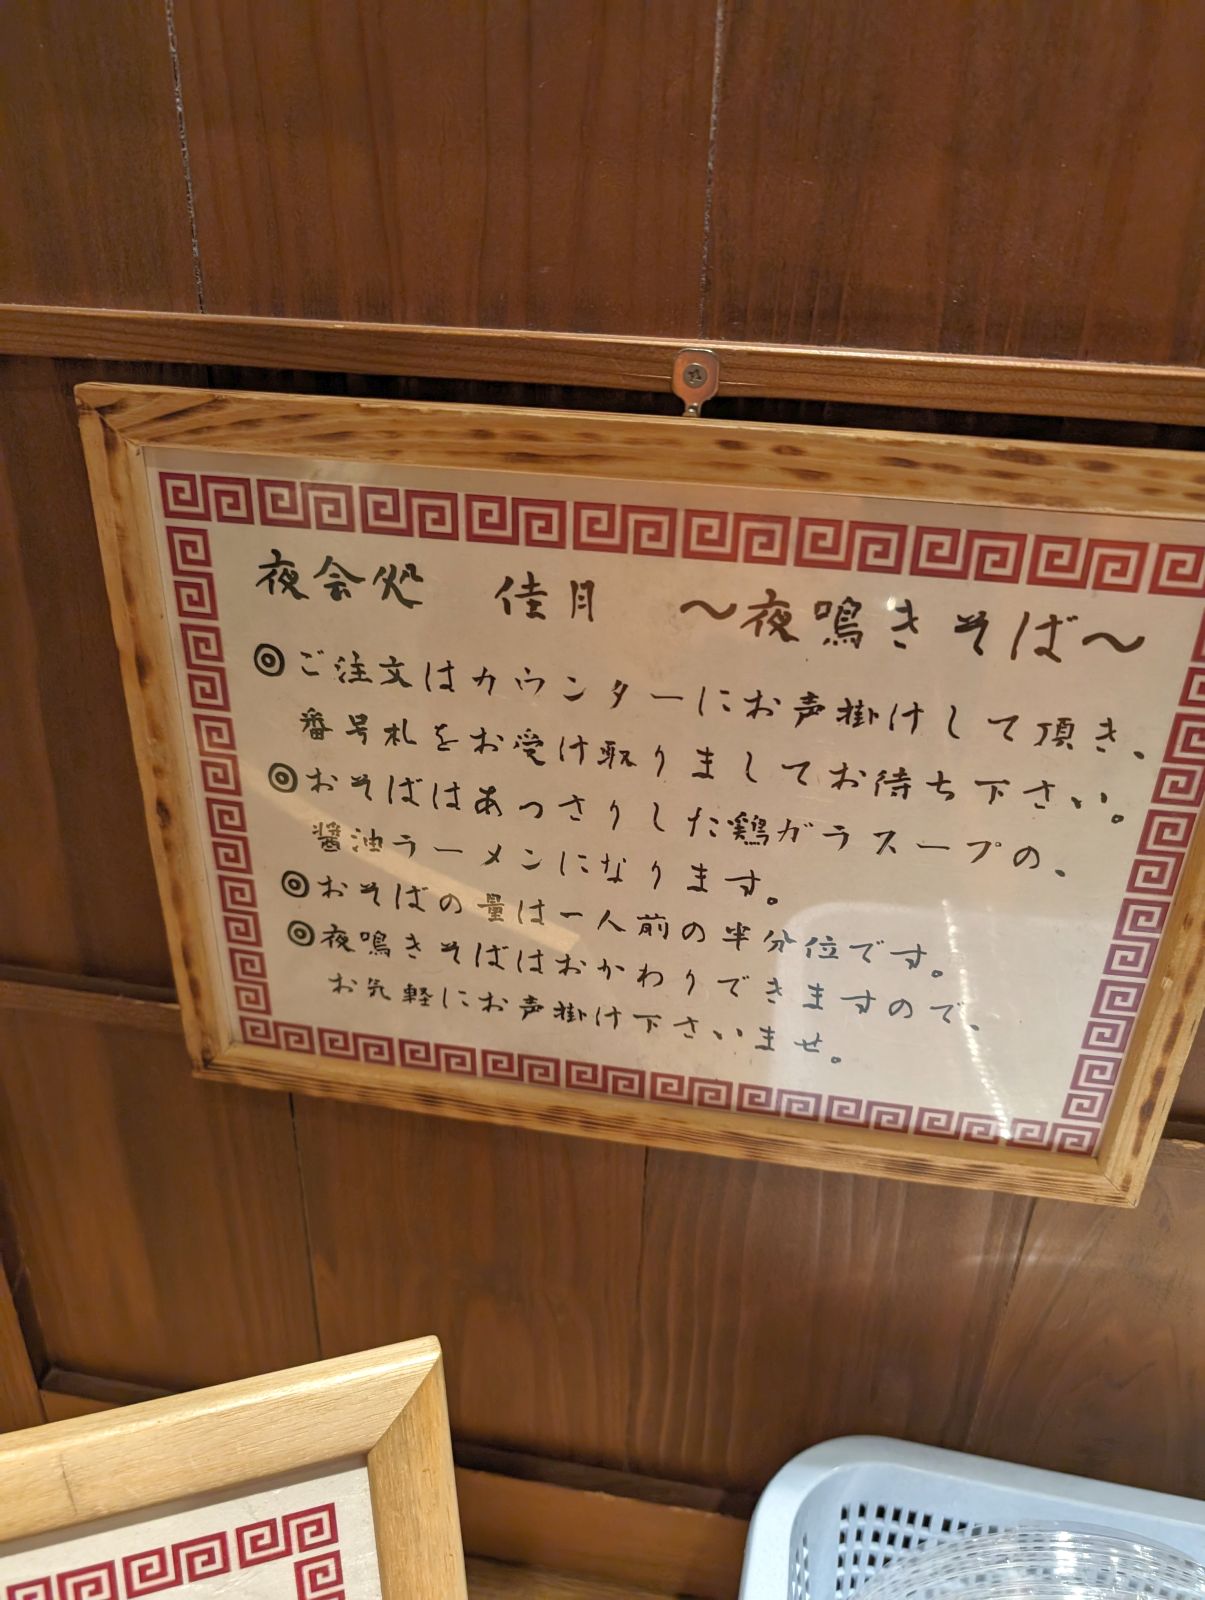 夜会処 佳月 〜夜鳴きそば〜
◎ご注文はカウンターにお声掛けして頂き、
番号札をお受け取りましてお待ち下さい。
◎おそばはあっさりした鶏ガラスープの、
醤油ラーメンになります。
◎おそばの量は一人前の半分位です。
◎夜鳴きそばはおかわりできますので、
お気軽にお声掛け下さいませ。